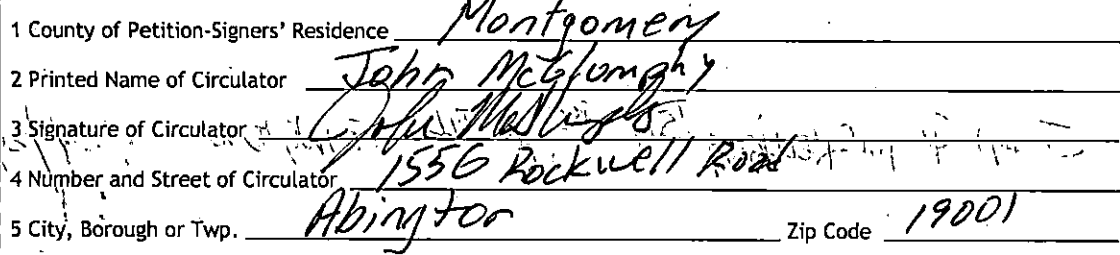 1 County of Petition-Signers' Residence Montgomery
2 Printed Name of Circulator John McGlomphy
3 Signature of Circulator John
4 Number and Street of Circulator 1556 Rockwell Road
5 City, Borough or Twp. Abington Zip Code 19001